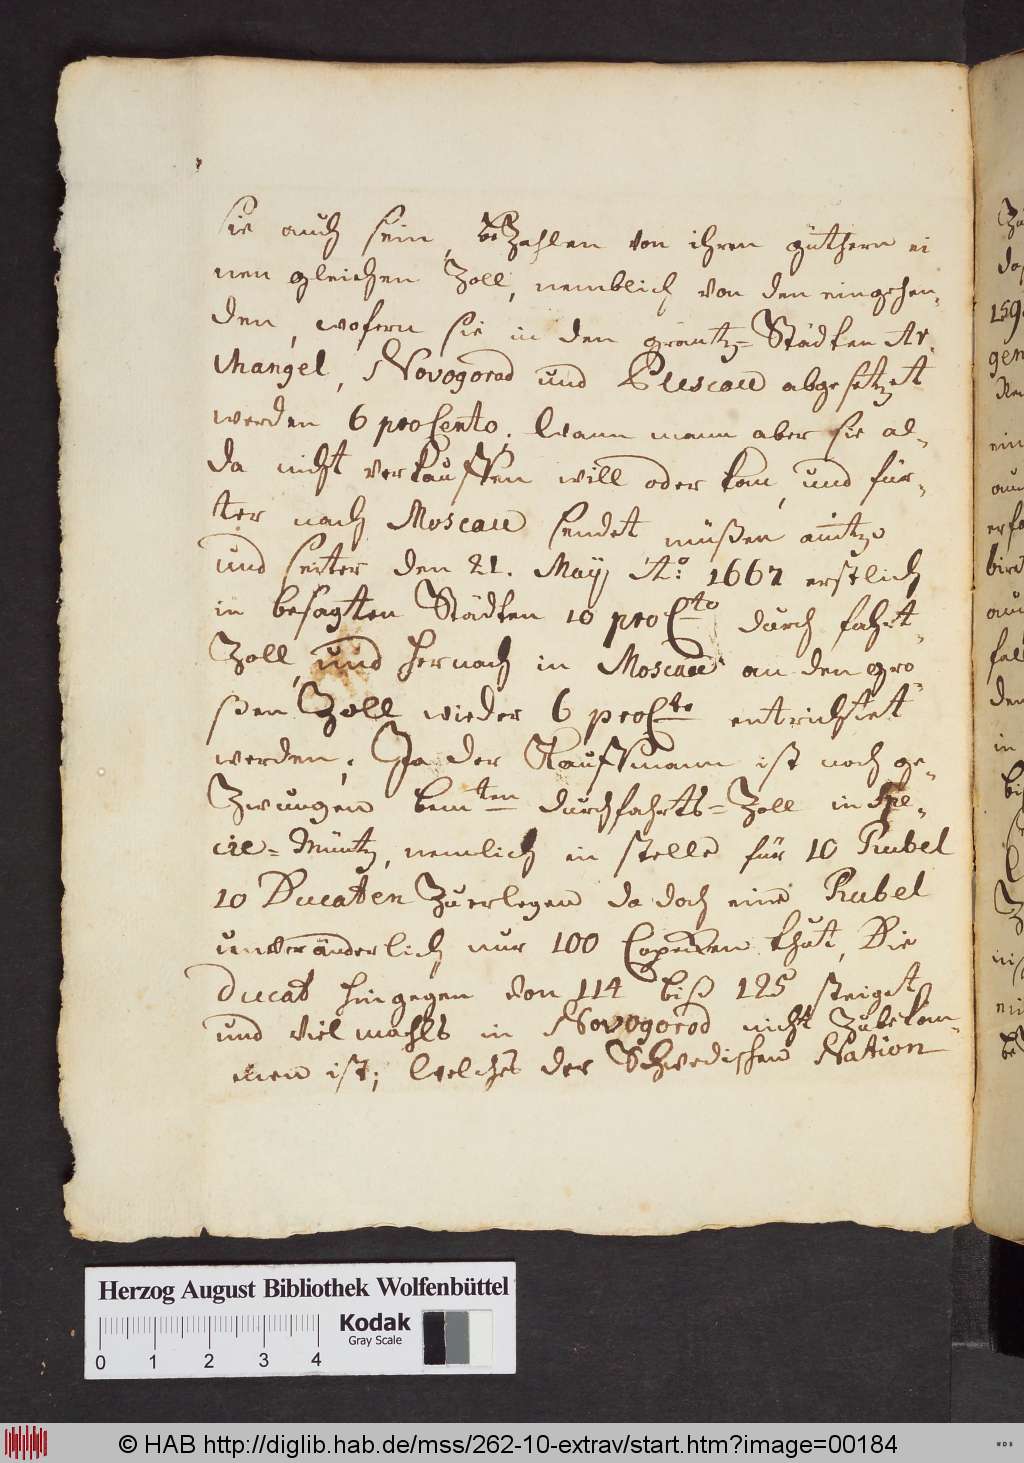 sie auch sein, beZahlen von ihren güthern ei
nen gleichen Zoll, nemblich von den eingehen-
den, wofern sie in den gräntz=Städten Ar-
changel, Novogorod und Plescau abgesetzet
werden 6 proCento. Wann mann aber sie al-
da nicht verkauffen will oder kan, und für-
ter nach Moscau sendet müßen anitzo
und seiter den 21. Maÿ Aº: 1667 erstlich
in besagten Städten 10 proCto durch fahrt-
Zoll, und hernach in Moscau an den gro-
ßen Zoll wieder 6 proCto entrichtet
werden; Ja der Kauffmann ist noch ge-
Zwungen bemten durchfahrts=Zoll in Spe-
cie=Müntz, nemlich in stelle für 10 Rubel
10 Ducaten Zuerlegen da doch eine Rubel
unveränderlich nur 100 Copeiken thut, Die
Ducat hingegen von 114 biß 125 steiget
und vielmahls in Novogorod nicht Zubekom-
men ist; Welches der Schwedischen Nation
Herzog August Bibliothek Wolfenbüttel
Kodak
Gray Scale
0 1 2 3 4
© HAB http://diglib.hab.de/mss/262-10-extrav/start.htm?image=00184